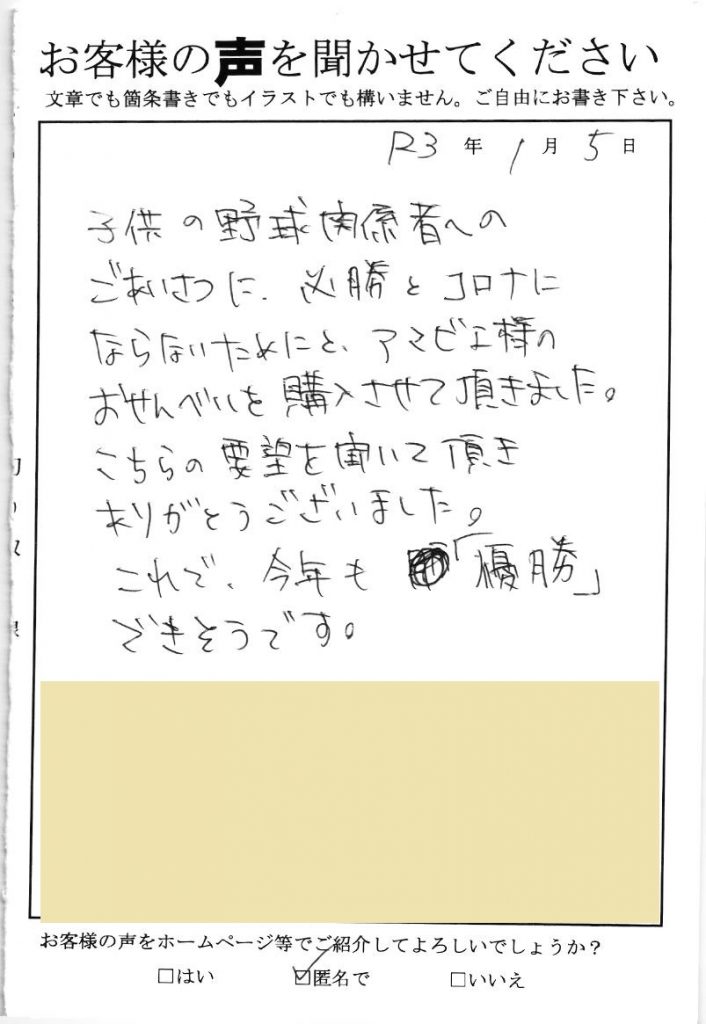 お客様の声を聞かせてください
文章でも箇条書きでもイラストでも構いません。ご自由にお書き下さい。
R3年1月5日
子供の野球関係者への
ごあいさつに、必勝とコロナに
ならないためにと、アマビエ様の
おせんべいを購入させて頂きました。
こちらの要望を聞いて頂き
ありがとうございました。
これで、今年も「優勝」
できそうです。
お客様の声をホームページ等でご紹介してよろしいでしょうか？
□はい ☑匿名で □いいえ